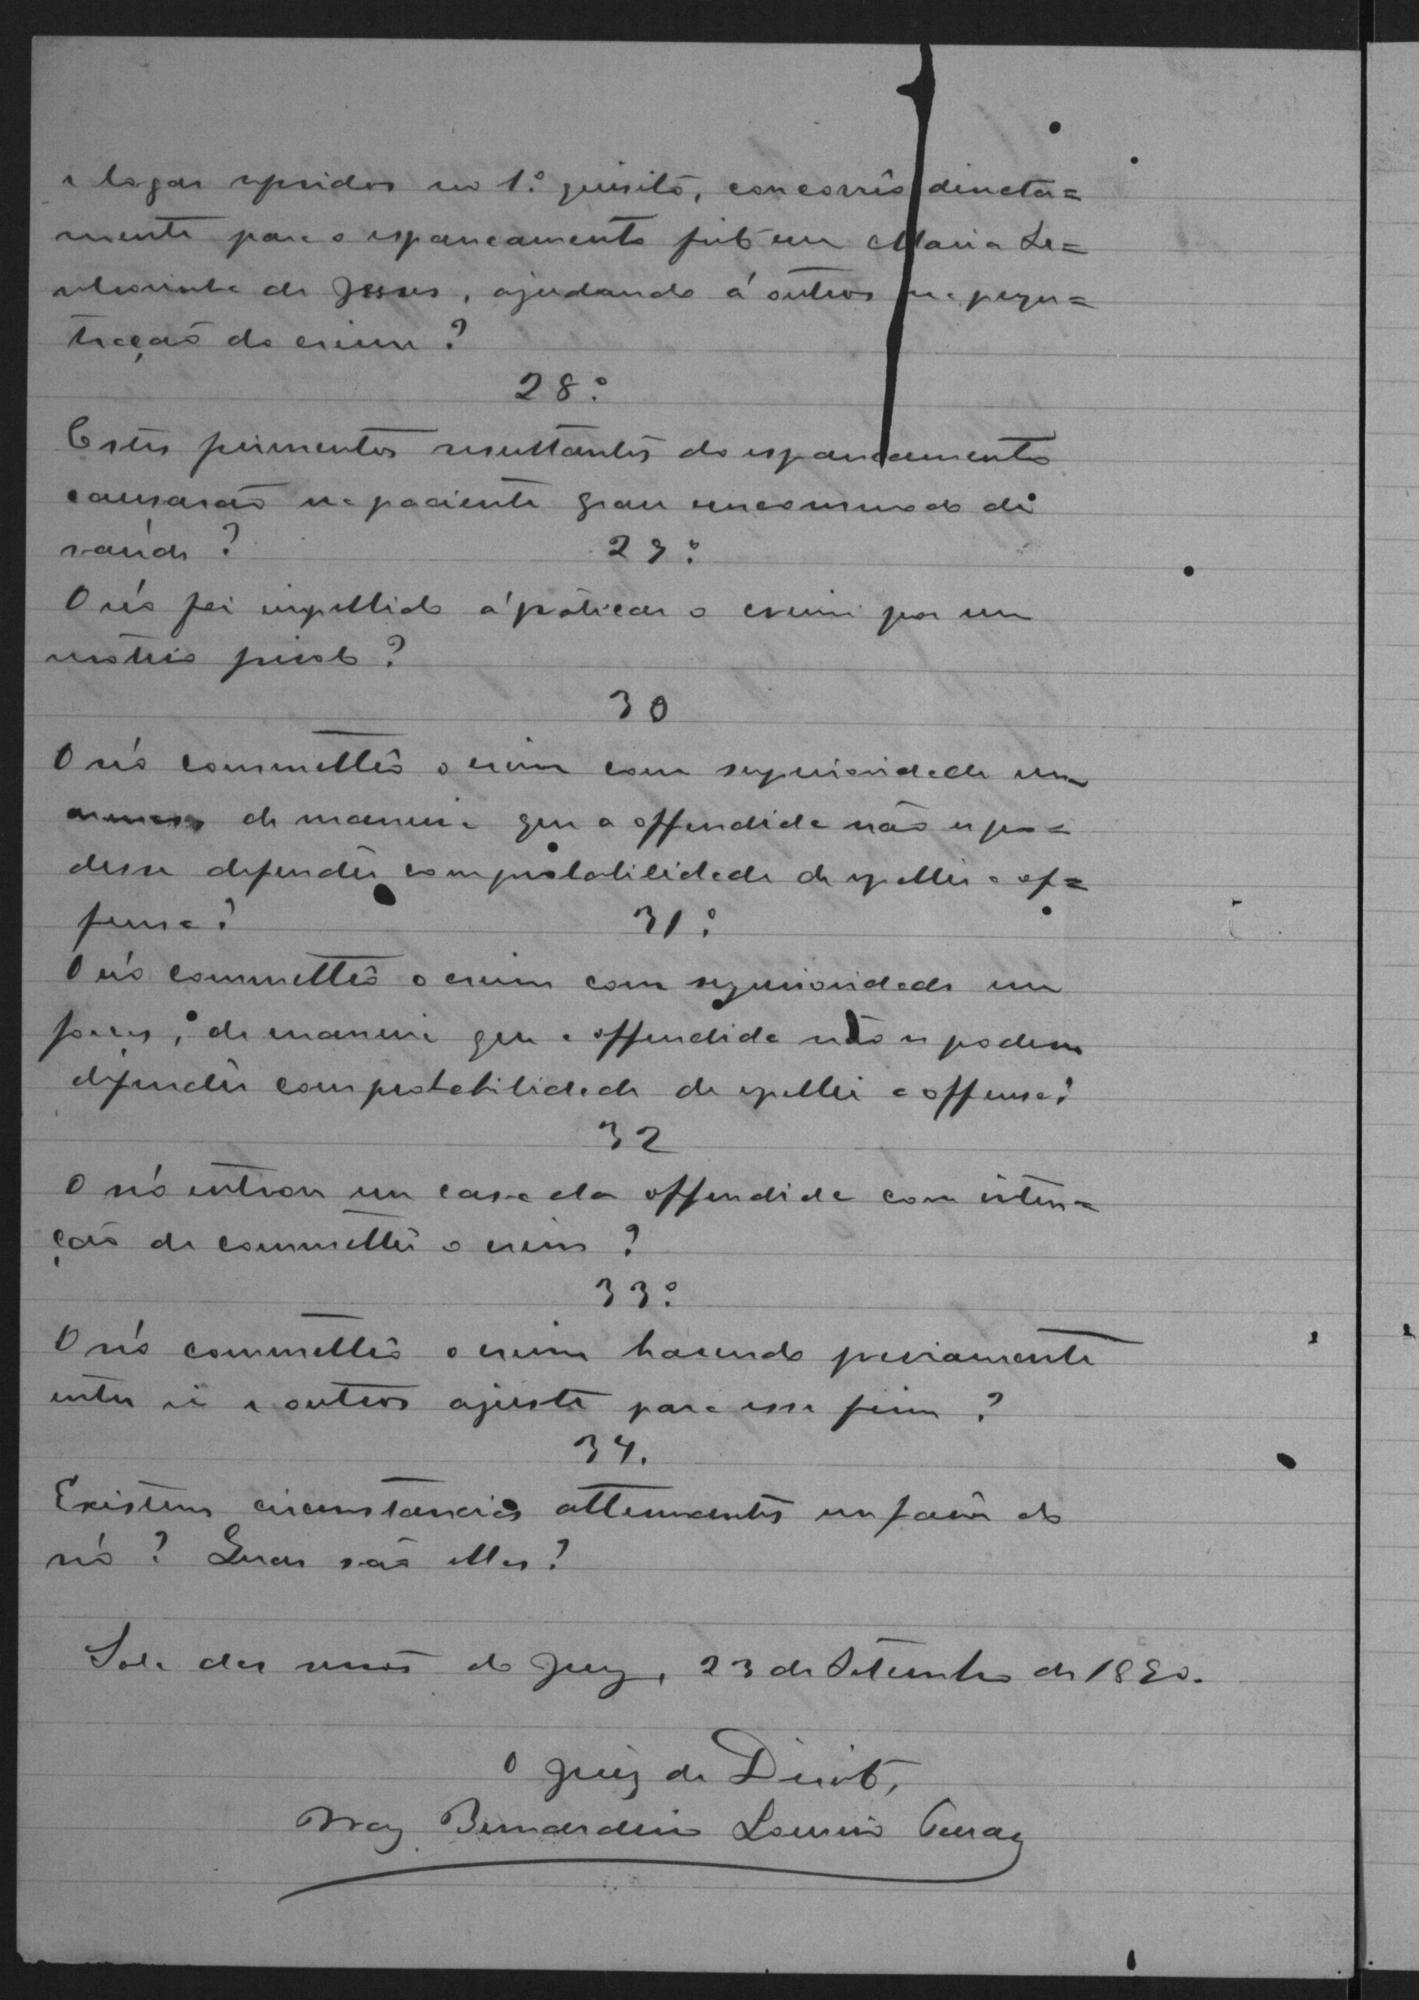 e logar referidos no 1.º quisito, concorrêo directa=
mente para o espancamento feito em Maria Se=
de Jesus, ajudando á outros na perpe=
tração do crime?
28º
Estes ferimentos resultantes do espancamento
causarão na paciente grave encommodo de
saúde?
29º
O réo foi impellido á praticar o crime por um
motivo frivolo?
30
O réo commetteo o crime com superioridade em
armas de maneira que a offendida não se po=
desse defender com probabilidade de repellir a of=
fensa?
31º
O réo commetteo o crime com superioridade em
forças, de maneira que a offendida não se podesse
defender com probabilidade de repellir a offensa?
32
O réo entrou em casa da offendida com inten=
ção de commetter o crime?
33º
O réo commetteo o crime havendo previamente
entre si e outros ajuste para esse fim?
34.
Existem circunstancias attenuantes em favor do
réo? Quaes são ellas?
Sala das do Jury, 23 de Setembro de 1890.
O Juiz de Direito,
Braz Bernardino Loureiro